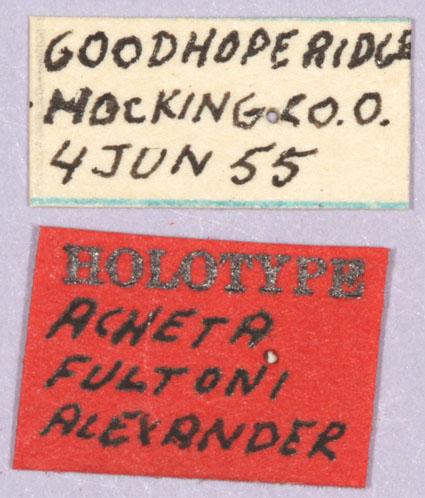 GOODHOPE RIDGE
HOCKING CO. O.
4 JUN 55
HOLOTYPE
ACHETA
FULTONI
ALEXANDER